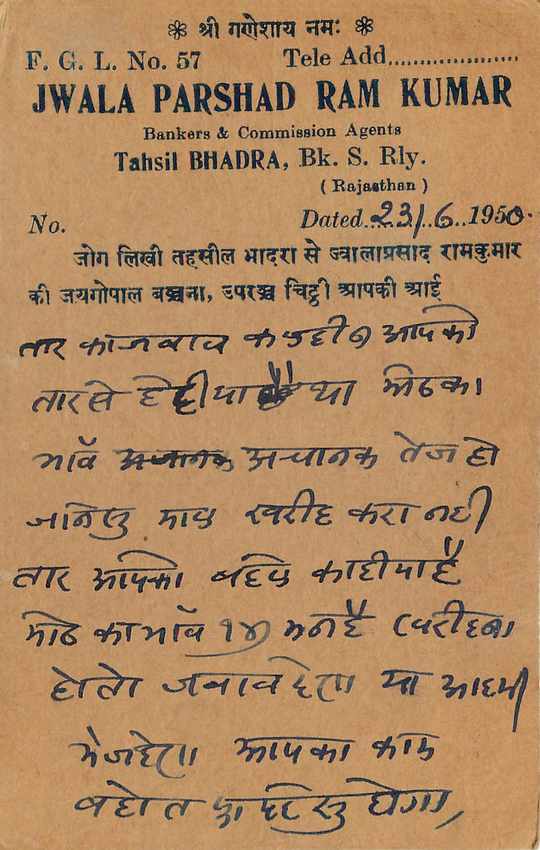 ❀ श्री गणेशाय नमः ❀
F. G. L. No. 57 Tele Add....................
JWALA PARSHAD RAM KUMAR
Bankers & Commission Agents
Tahsil BHADRA, Bk. S. Rly.
( Rajasthan )
No. Dated 23/6 1950.
जोग लिखी तहसील भादरा से ज्वालाप्रसाद रामकुमार
की जयगोपाल बञ्चना, उपरञ्च चिट्ठी आपकी आई
तार का जवाब आपको
तार से था मोठ का
भाव अचानक तेज हो
खरीद करा नही
तार आपका
मोठ का भाव १४) मन है खरीदना
होतो जवाब देना या आदमी
भेजदेना आपका काम
बहोत